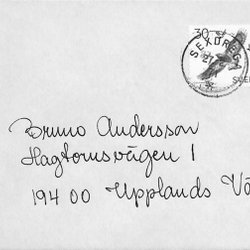 30
SEXDREGA
Bruno Andersson
Hagtornsvägen 1
194 00 Upplands Vä